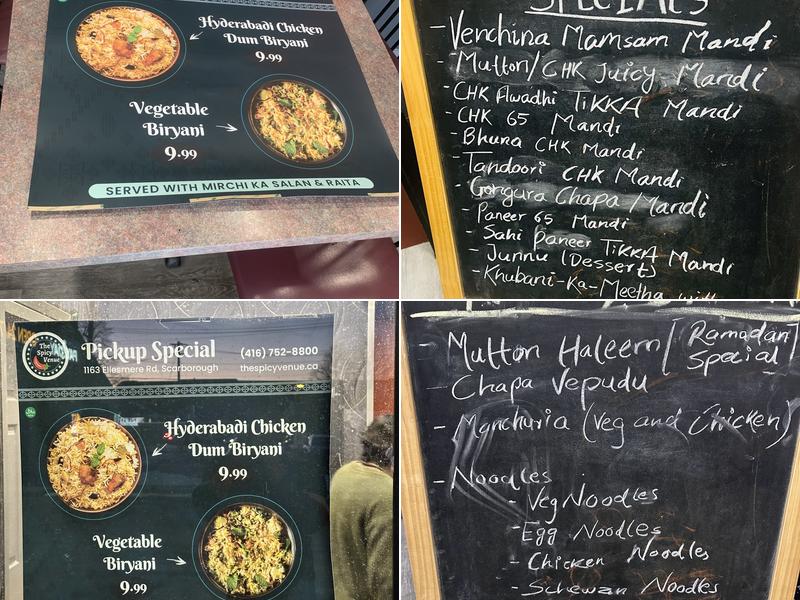 Hyderabadi Chicken
Dum Biryani
9.99
Vegetable
Biryani
9.99
SERVED WITH MIRCHI KA SALAN & RAITA
SPECIALS
- Venchina Mamsam Mandi
- Mutton/CHK Juicy Mandi
- CHK Awadhi TIKKA Mandi
- CHK 65 Mandi
- Bhuna CHK Mandi
- Tandoori CHK Mandi
- Gongura Chapa Mandi
- Paneer 65 Mandi
- Sahi paneer TIKKA Mandi
- Junnu (Dessert)
- Khubani-Ka-Meetha with
The
Spicy
Venue
Pickup Special
(416) 752-8800
1163 Ellesmere Rd, Scarborough
thespicyvenue.ca
Hyderabadi Chicken
Dum Biryani
9.99
Vegetable
Biryani
9.99
- Mutton Haleem [Ramadan
Special]
Chapa Vepudu
- Manchuria (Veg and Chicken)
- Noodles
- Veg Noodles
- Egg Noodles
- Chicken Noodles
- Schewan Noodles